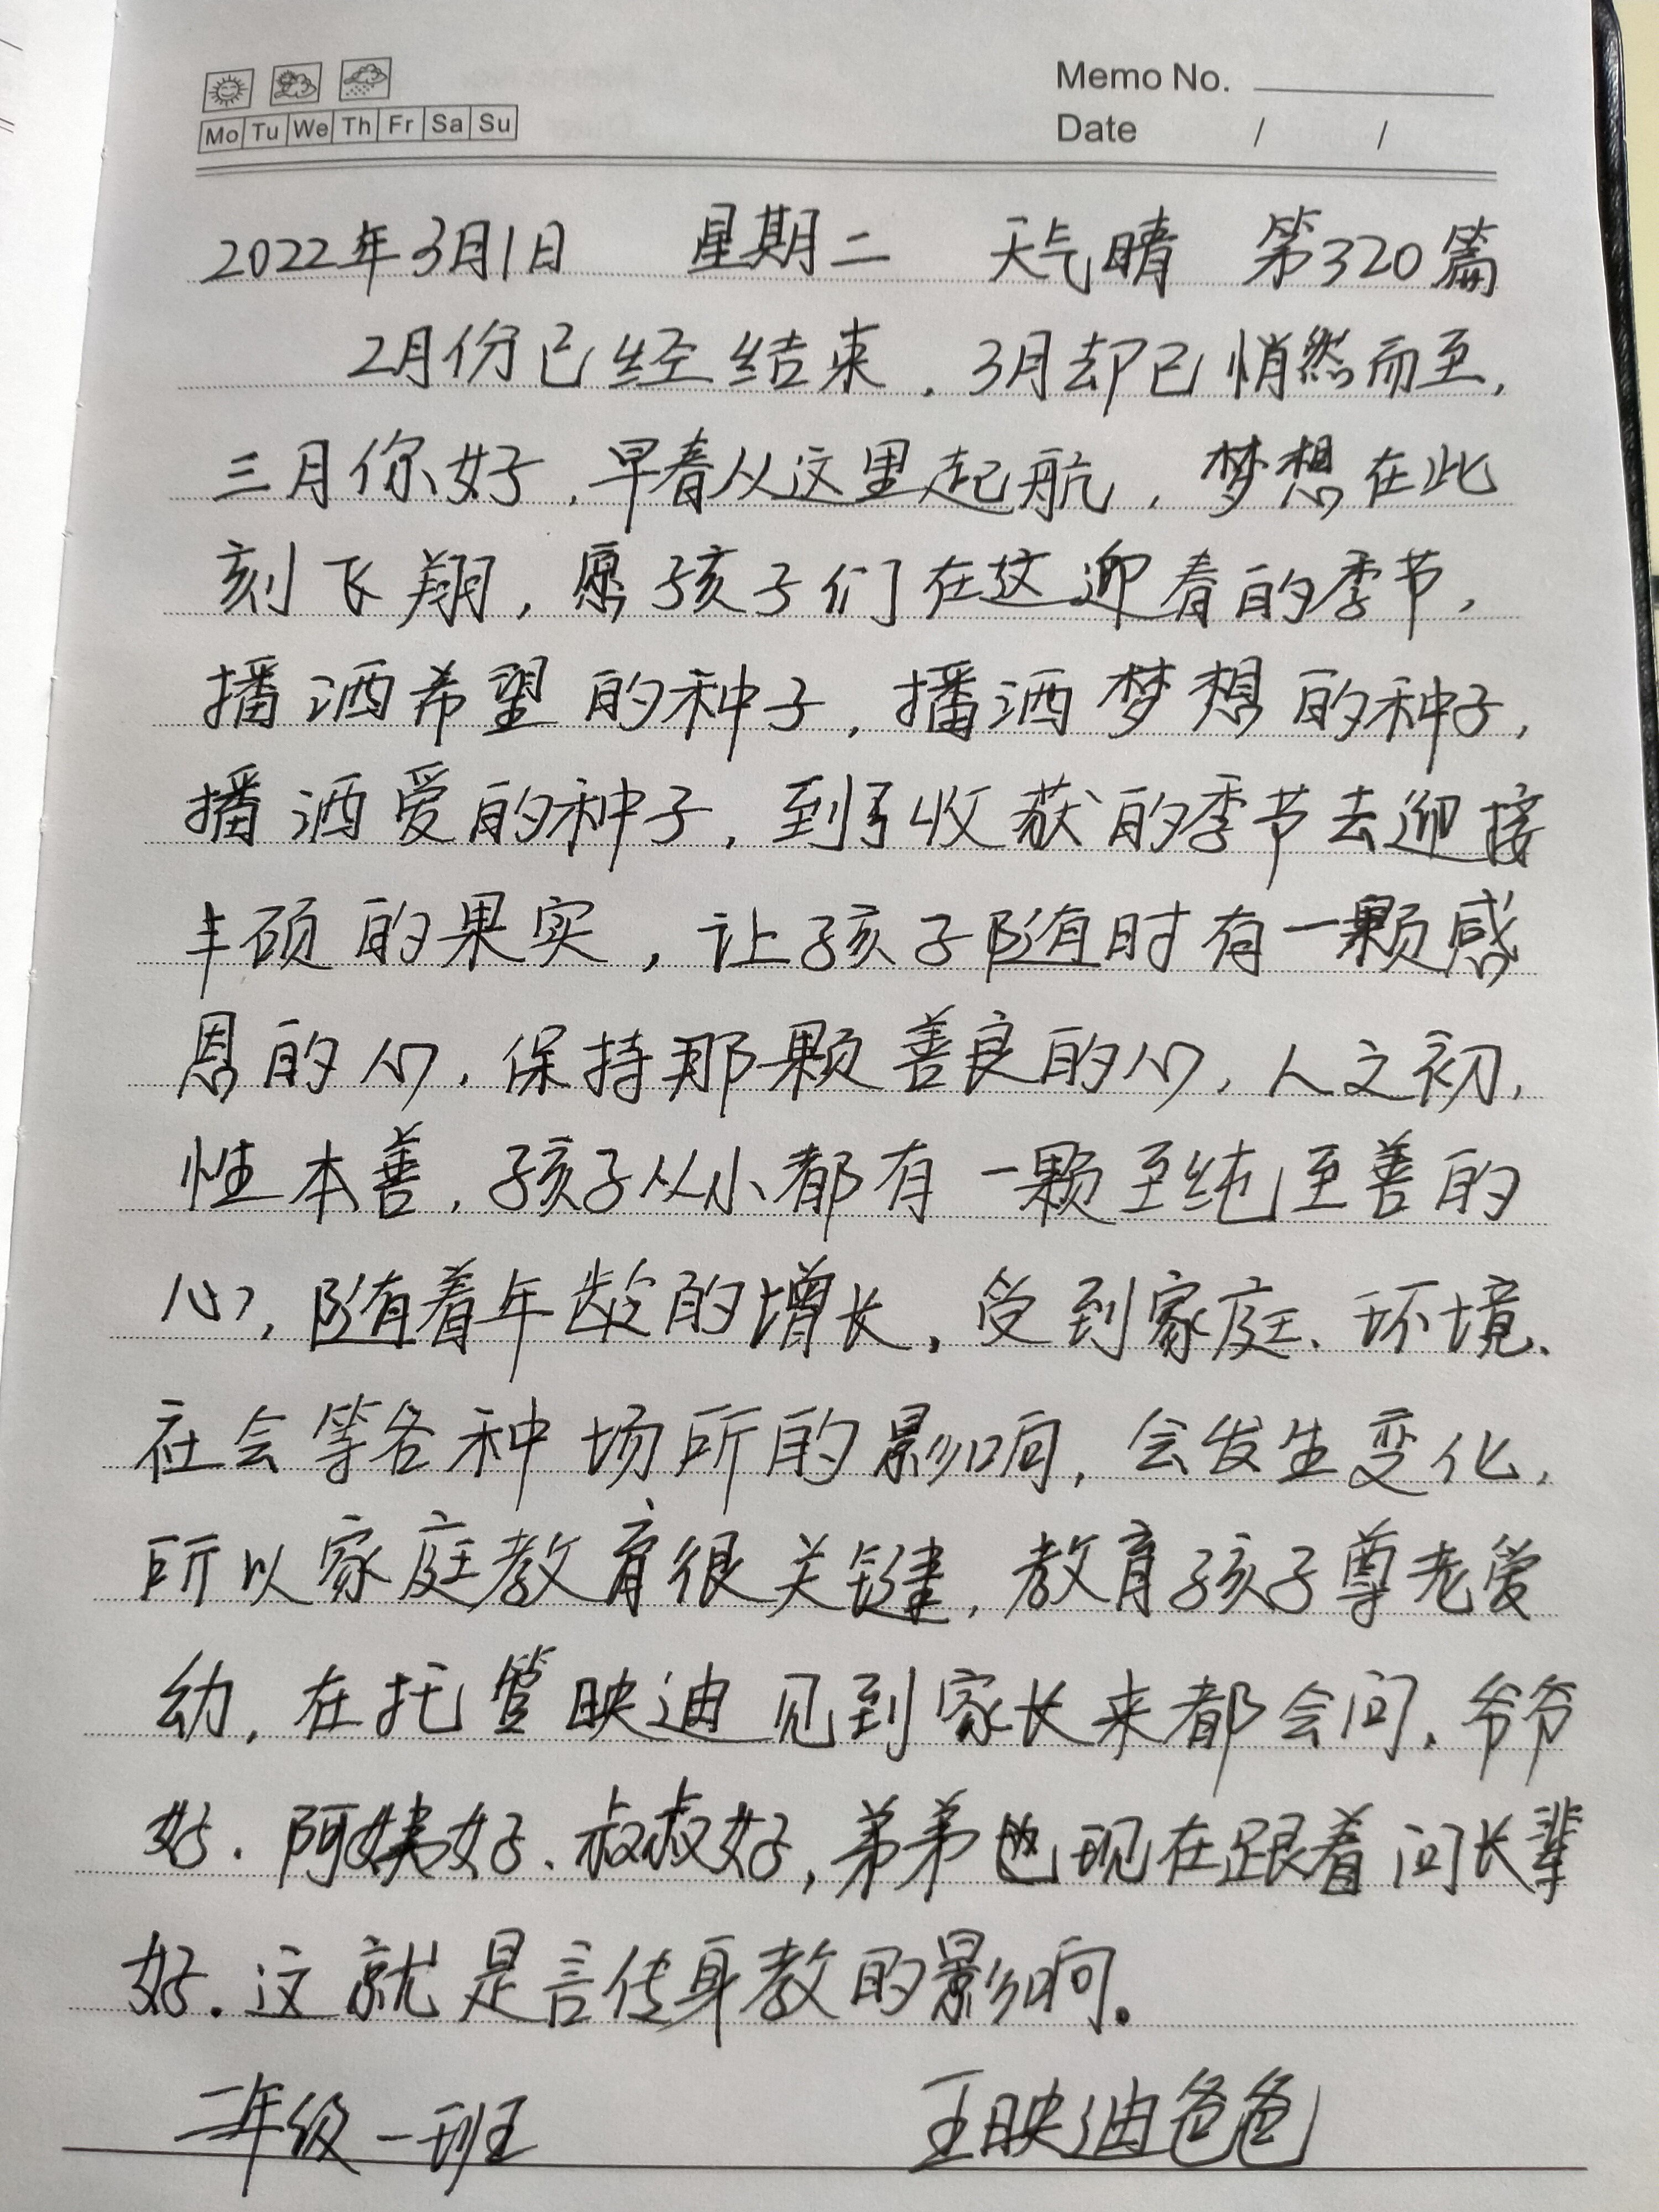 Memo No.
Mo Tu We Th Fr Sa Su
Date / /
2022年3月1日 星期二 天气晴 第320篇
2月份已经结束，3月却已悄然而至，
三月你好，早春从这里起航，梦想在此
刻飞翔，愿孩子们在这迎春的季节，
播洒希望的种子，播洒梦想的种子，
播洒爱的种子，到了收获的季节去迎接
丰硕的果实，让孩子随时有一颗感
恩的心，保持那颗善良的心，人之初，
性本善，孩子从小都有一颗至纯至善的
心，随着年龄的增长，受到家庭、环境、
社会等各种场所的影响，会发生变化，
所以家庭教育很关键，教育孩子尊老爱
幼，在托管映迪见到家长来都会问，爷爷
好、阿姨好、叔叔好，弟弟也现在跟着问长辈
好．这就是言传身教的影响。
二年级一班 王映迪爸爸